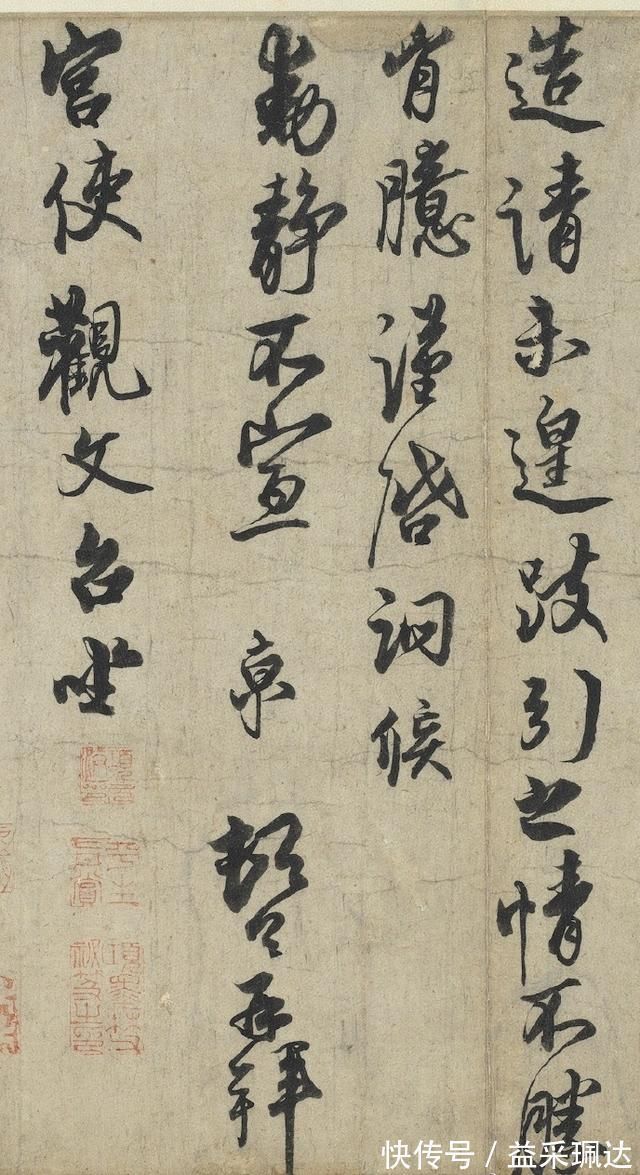 造請未遑跂引之情不勝
胷臆謹啓詗候
動靜不宣 京 頓首再拜
宮使觀文台坐
快传号/益采珮达